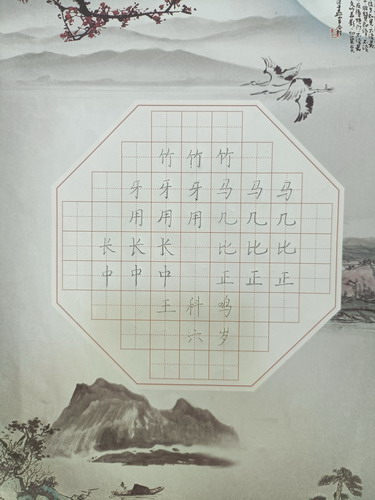 竹竹竹
牙牙牙马马马
用用用几几几
长长长比比比
中中中正正正
王科鸣
六岁